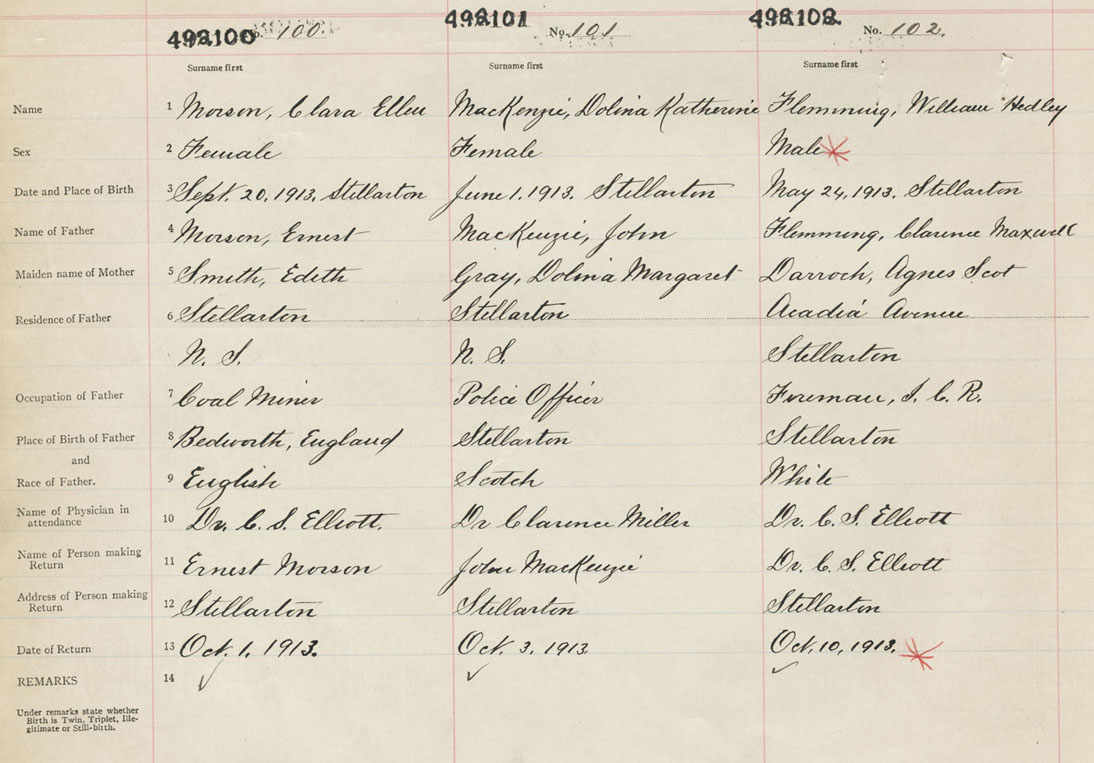 498100 498101 498102
No. 100. No. 101 No. 102.
Surname first Surname first Surname first
Name 1 Morson, Clara Ellen MacKenzie, Dolina Katherine Flemming, William Hedley
Sex 2 Female Female Male
Date and Place of Birth 3 Sept. 20, 1913. Stellarton June 1. 1913. Stellarton May 24, 1913. Stellarton
Name of Father 4 Morson, Ernest MacKenzie, John Flemming, Clarence Maxwell
Maiden name of Mother 5 Smith, Edith Gray, Dolina Margaret Darroch, Agnes Scot
Residence of Father 6 Stellarton Stellarton Acadia Avenue
N. S. N. S. Stellarton
Occupation of Father 7 Coal Miner Police Officer Foreman, I. C. R.
Place of Birth of Father 8 Bedworth, England Stellarton Stellarton
and
Race of Father. 9 English Scotch White
Name of Physician in
attendance 10 Dr. C. S. Elliott. Dr Clarence Miller Dr. C. S. Elliott
Name of Person making
Return 11 Ernest Morson John MacKenzie Dr. C. S. Elliott
Address of Person making
Return 12 Stellarton Stellarton Stellarton
Date of Return 13 Oct. 1. 1913. Oct. 3. 1913 Oct. 10, 1913.
REMARKS 14
Under remarks state whether
Birth is Twin, Triplet, Ille-
gitimate or Still-birth.